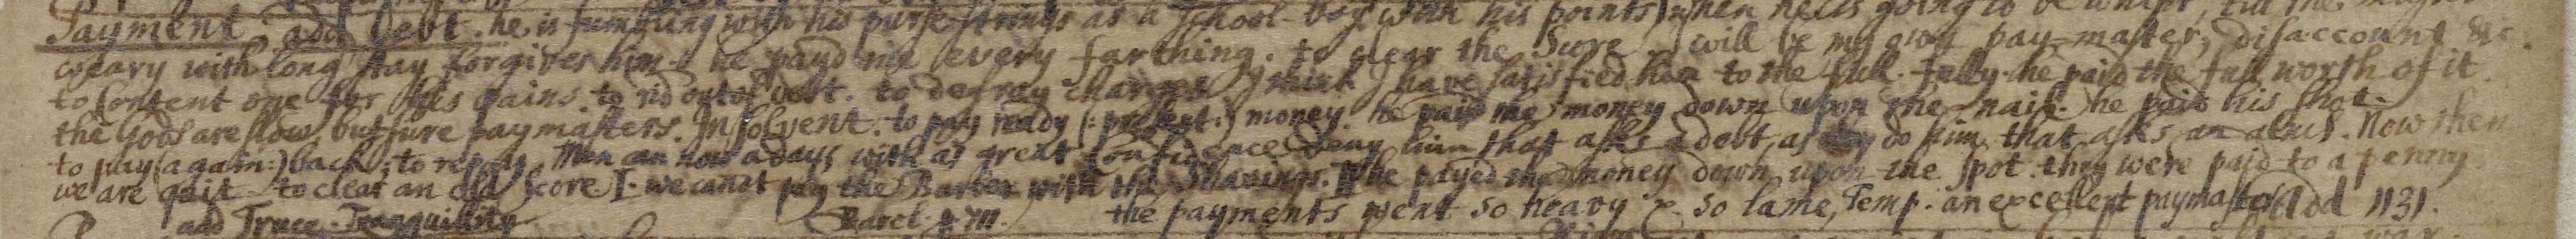 Payment. add Debt. he is fumbling with his purse-strings as a School-boy with his points, when he is going to be whipt, till the
weary with long stay forgives him. he payd me every farthing. to clear the Score. I will be my own pay-master, disaccount &c.
to Content one for his pains. to rid out of debt. to defray charges. I think I have satisfied him to the full. fully. he paid the full worth of it.
the Gods are slow, but sure paymasters. Insolvent. to pay ready (: present:) money. he paid me money down upon the nail. he paid his shot.
to pay (again:) back, to repay. Men can now adays with as great Confidence deny him that asks a debt, as they do him that asks an alms. Now then
we are quit. to clear an old Score. we canot pay the Barber with the Shavings. he payed the money down upon the spot. they were paid to a penny.
add Truce. Tranquillity. Barcl. the payments went so heavy & so lame, Temp. an excellent paymaster. Add 1131.